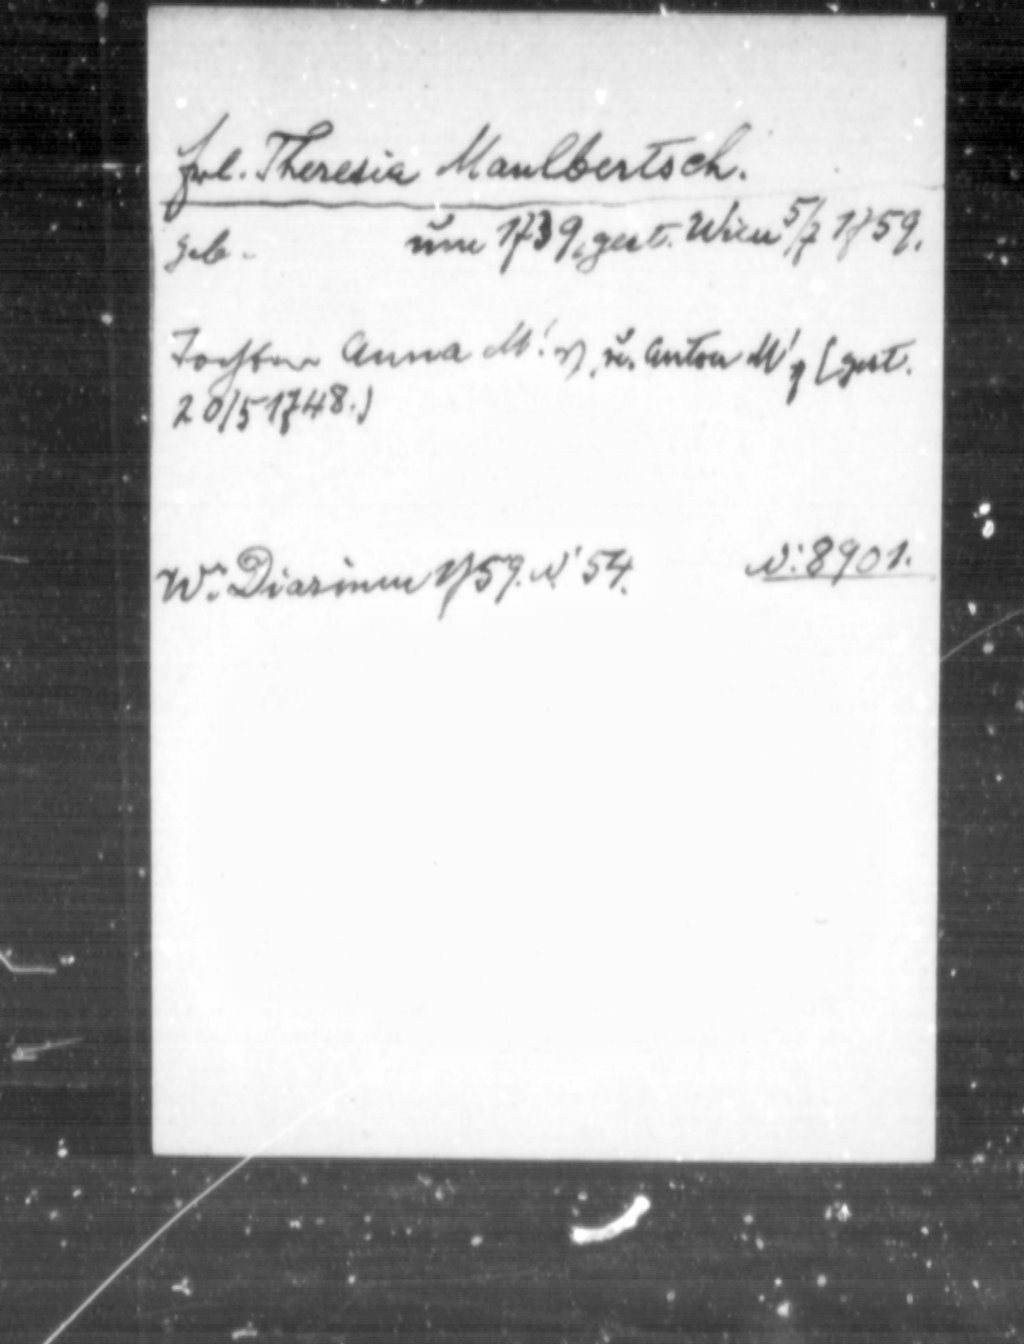 Frl. Theresia Maulbertsch.
geb. um 1739, gest. Wien 5/7 1759.
Tochter Anna M! u. Anton M! (gest.
20/5 1748.)
Wr. Diarium 1759. N! 54. N: 8901.